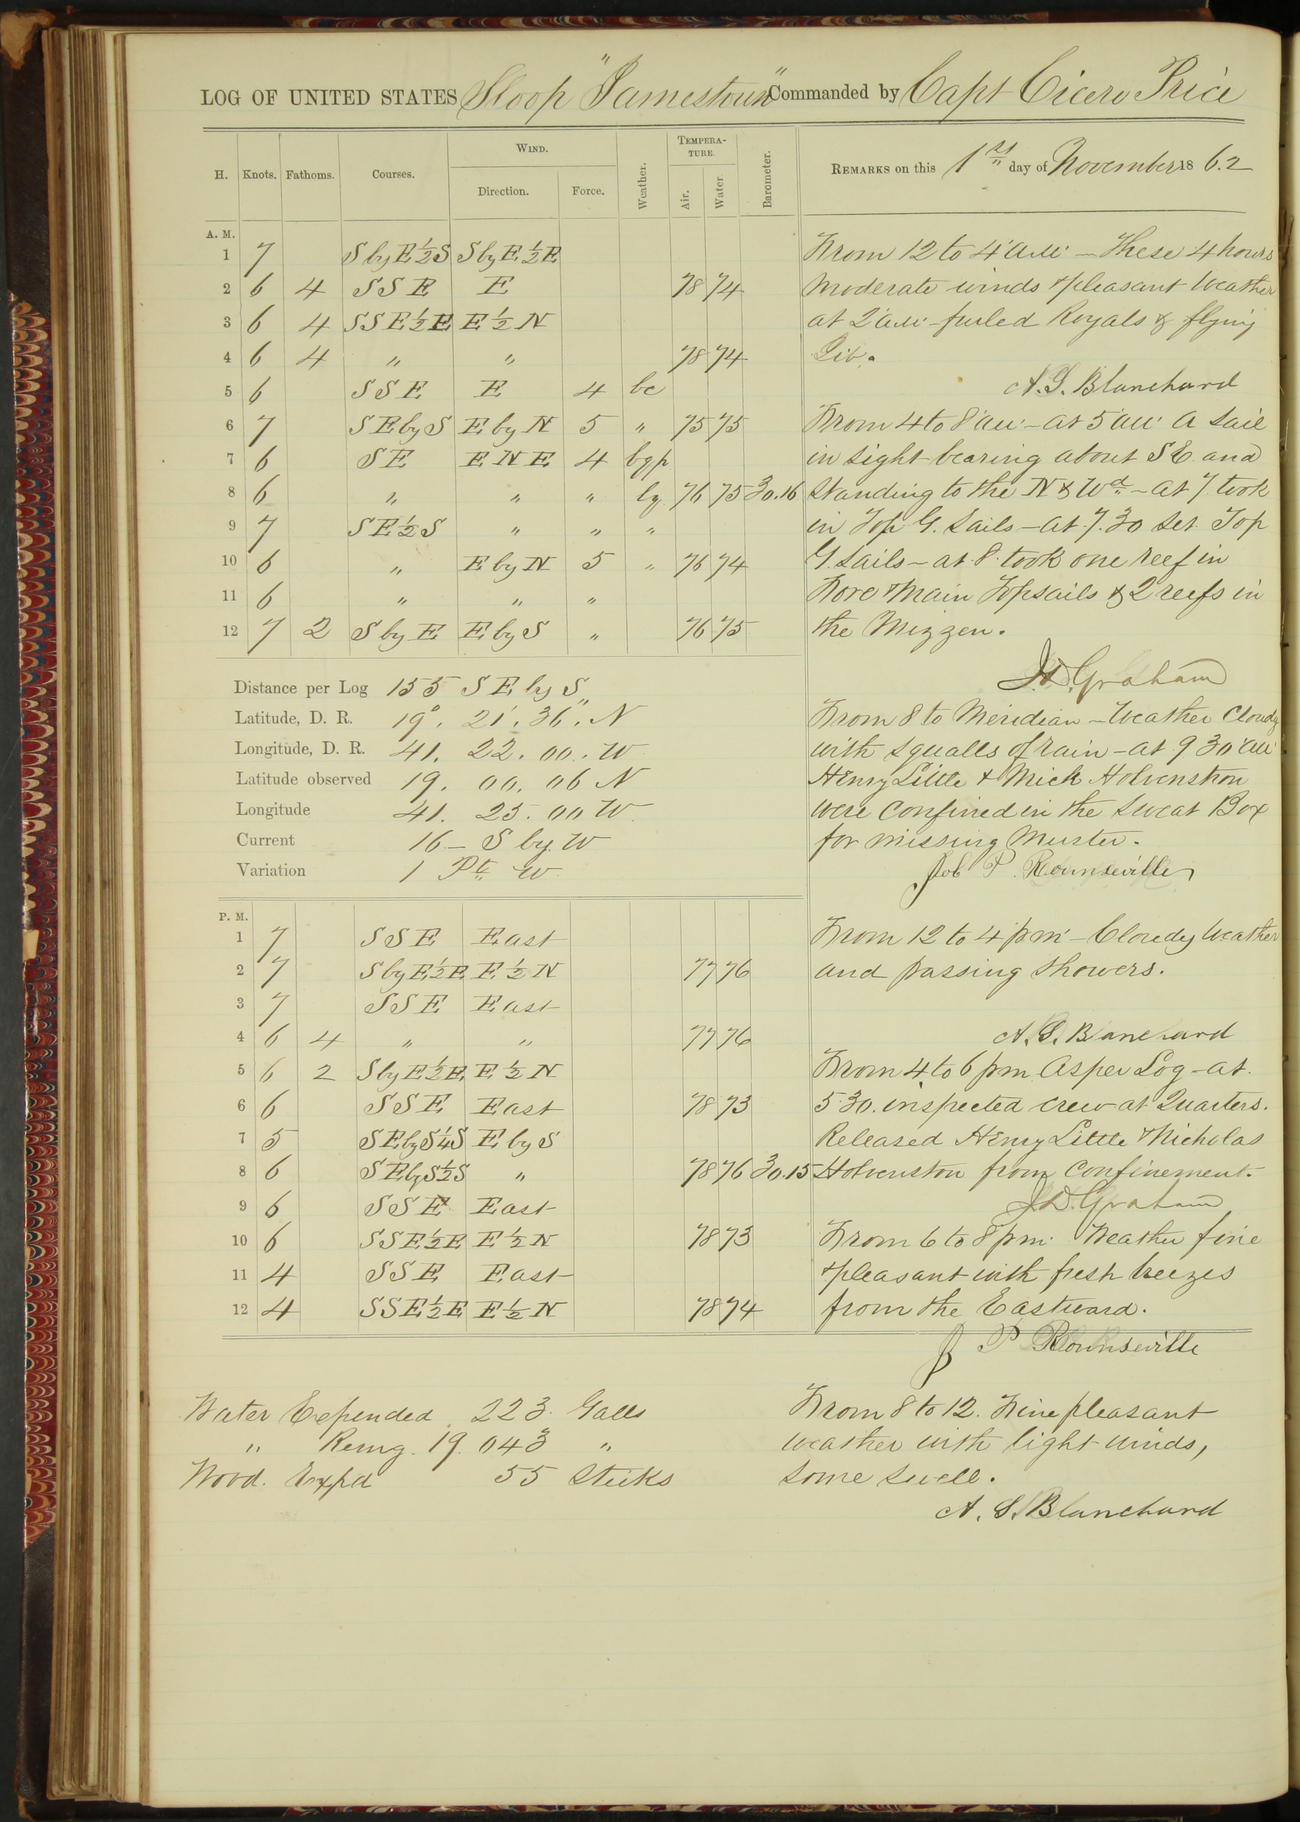 LOG OF UNITED STATES Sloop "Jamestown" Commanded by Capt Cicero Price
H. Knots. Fathoms. Courses. WIND. Direction. Force. Weather. TEMPERATURE. Air. Water Barometer.
REMARKS on this 1st day of November 1862
A. M.
1 7 SbyE½S SbyE½E
2 6 4 SSE E 78 74
3 6 4 SSE½E E½N
4 6 4 " " 78 74
5 6 SSE E 4 bc
6 7 SEbyS EbyN 5 " 75 75
7 6 SE ENE 4 bgp
8 6 " " " bg 76 75 30.16
9 7 SE½S " " "
10 6 " EbyN 5 " 76 74
11 6 " " "
12 7 2 SbyE EbyS " 76 75
Distance per Log 155 SE by S
Latitude, D. R. 19°. 21'. 36". N
Longitude, D. R. 41. 22. 00. W
Latitude observed 19. 00. 06 N
Longitude 41. 25. 00 W
Current 16 - S by W
Variation 1 Pt. W
P. M.
1 7 SSE East
2 7 SbyE½E E½N 77 76
3 7 SSE East
4 6 4 " " 77 76
5 6 2 SbyE½E E½N
6 6 SSE East 78 73
7 5 SEbyS¼S EbyS
8 6 SEbyS½S " 78 76 30.15
9 6 SSE East
10 6 SSE½E E½N 78 73
11 4 SSE East
12 4 SSE½E E½N 78 74
Water Expended 223 Galls
" Remg. 19.043 "
Wood. Expd 55 Sticks
From 12 to 4 am - These 4 hours
moderate winds & pleasant weather
at 2 am furled Royals & flying
Jib.
A. S. Blanchard
From 4 to 8 am - at 5 am a sail
in sight bearing about SE and
standing to the N & Wd - at 7 took
in Top G. Sails - at 7.30 set Top
G. Sails - at 8 took one reef in
Fore & Main Topsails & 2 reefs in
the Mizzen.
J. D. Graham
From 8 to Meridian - Weather Cloudy
with squalls of rain - at 9 30 am
Henry Little & Mich Holvenston
were confined in the Sweat Box
for missing Muster.
Job P. Rounseville
From 12 to 4 pm - Cloudy weather
and passing showers.
A. S. Blanchard
From 4 to 6 pm As per Log - at
5.30. inspected crew at Quarters.
Released Henry Little & Nicholas
Holvenston from confinement.
J. D. Graham
From 6 to 8 pm. Weather fine
& pleasant with fresh breezes
from the Eastward.
J P Rounseville
From 8 to 12. Fine pleasant
weather with light winds,
some swell.
A. S. Blanchard